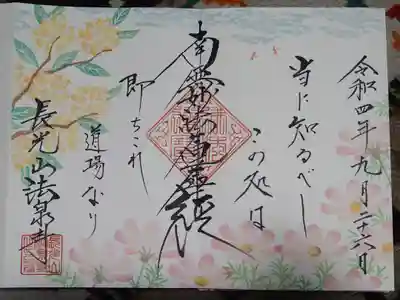 令和四年九月二十六日
当に知るべし
この処は
南無妙法蓮華経
即ちこれ
道場なり
長光山法泉寺